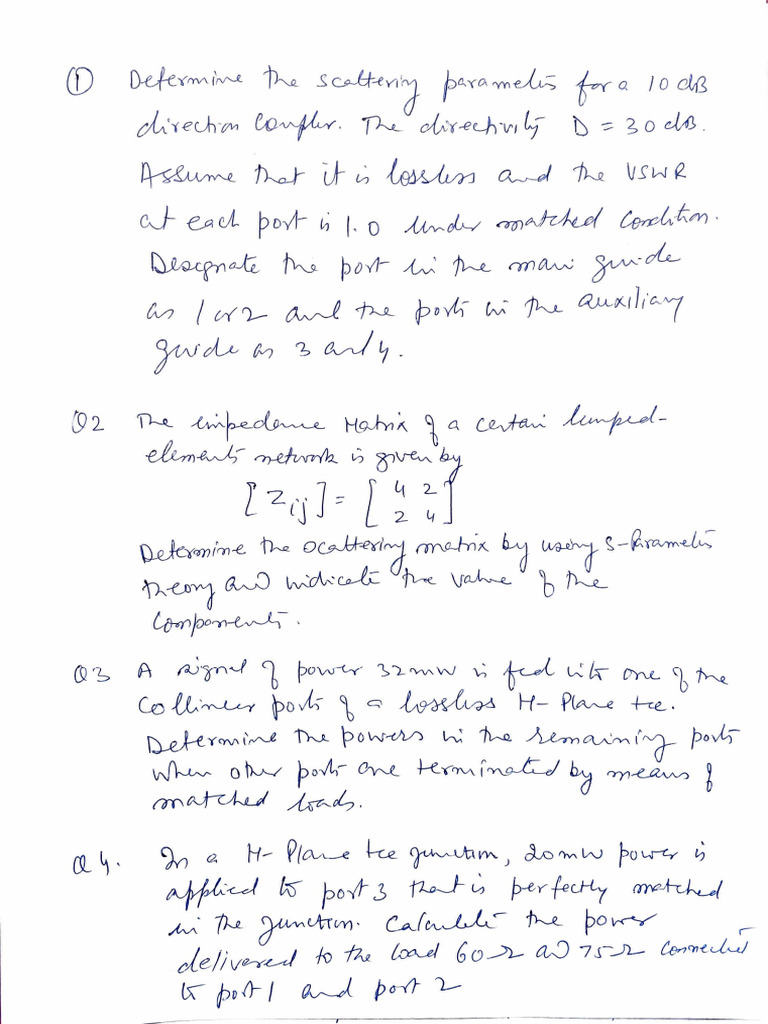 ① Determine the scattering parametes for a 10 dB
direction Coupler. The directivity D = 30 dB.
Assume that it is lossless and the VSWR
at each port is 1.0 under matched Condition.
Designate the port in the main guide
as 1 or 2 and the ports in the auxiliary
guide as 3 and 4.
Q2 The impedance Matrix of a certain lumped-
elements network is given by
[Zij] = [4 2
2 4]
Determine the scattering matrix by using S-Parametes
theory and indicate the value of the
Components.
Q3 A signal of power 32mw is fed into one of the
Collinear ports of a lossless H-Plane tee.
Determine the powers in the remaining ports
when other ports are terminated by means of
matched loads.
Q4. In a H-Plane tee junction, 20mw power is
applied to port 3 that is perfectly matched
in the junction. Calculate the power
delivered to the load 60Ω and 75Ω Connected
to port 1 and port 2